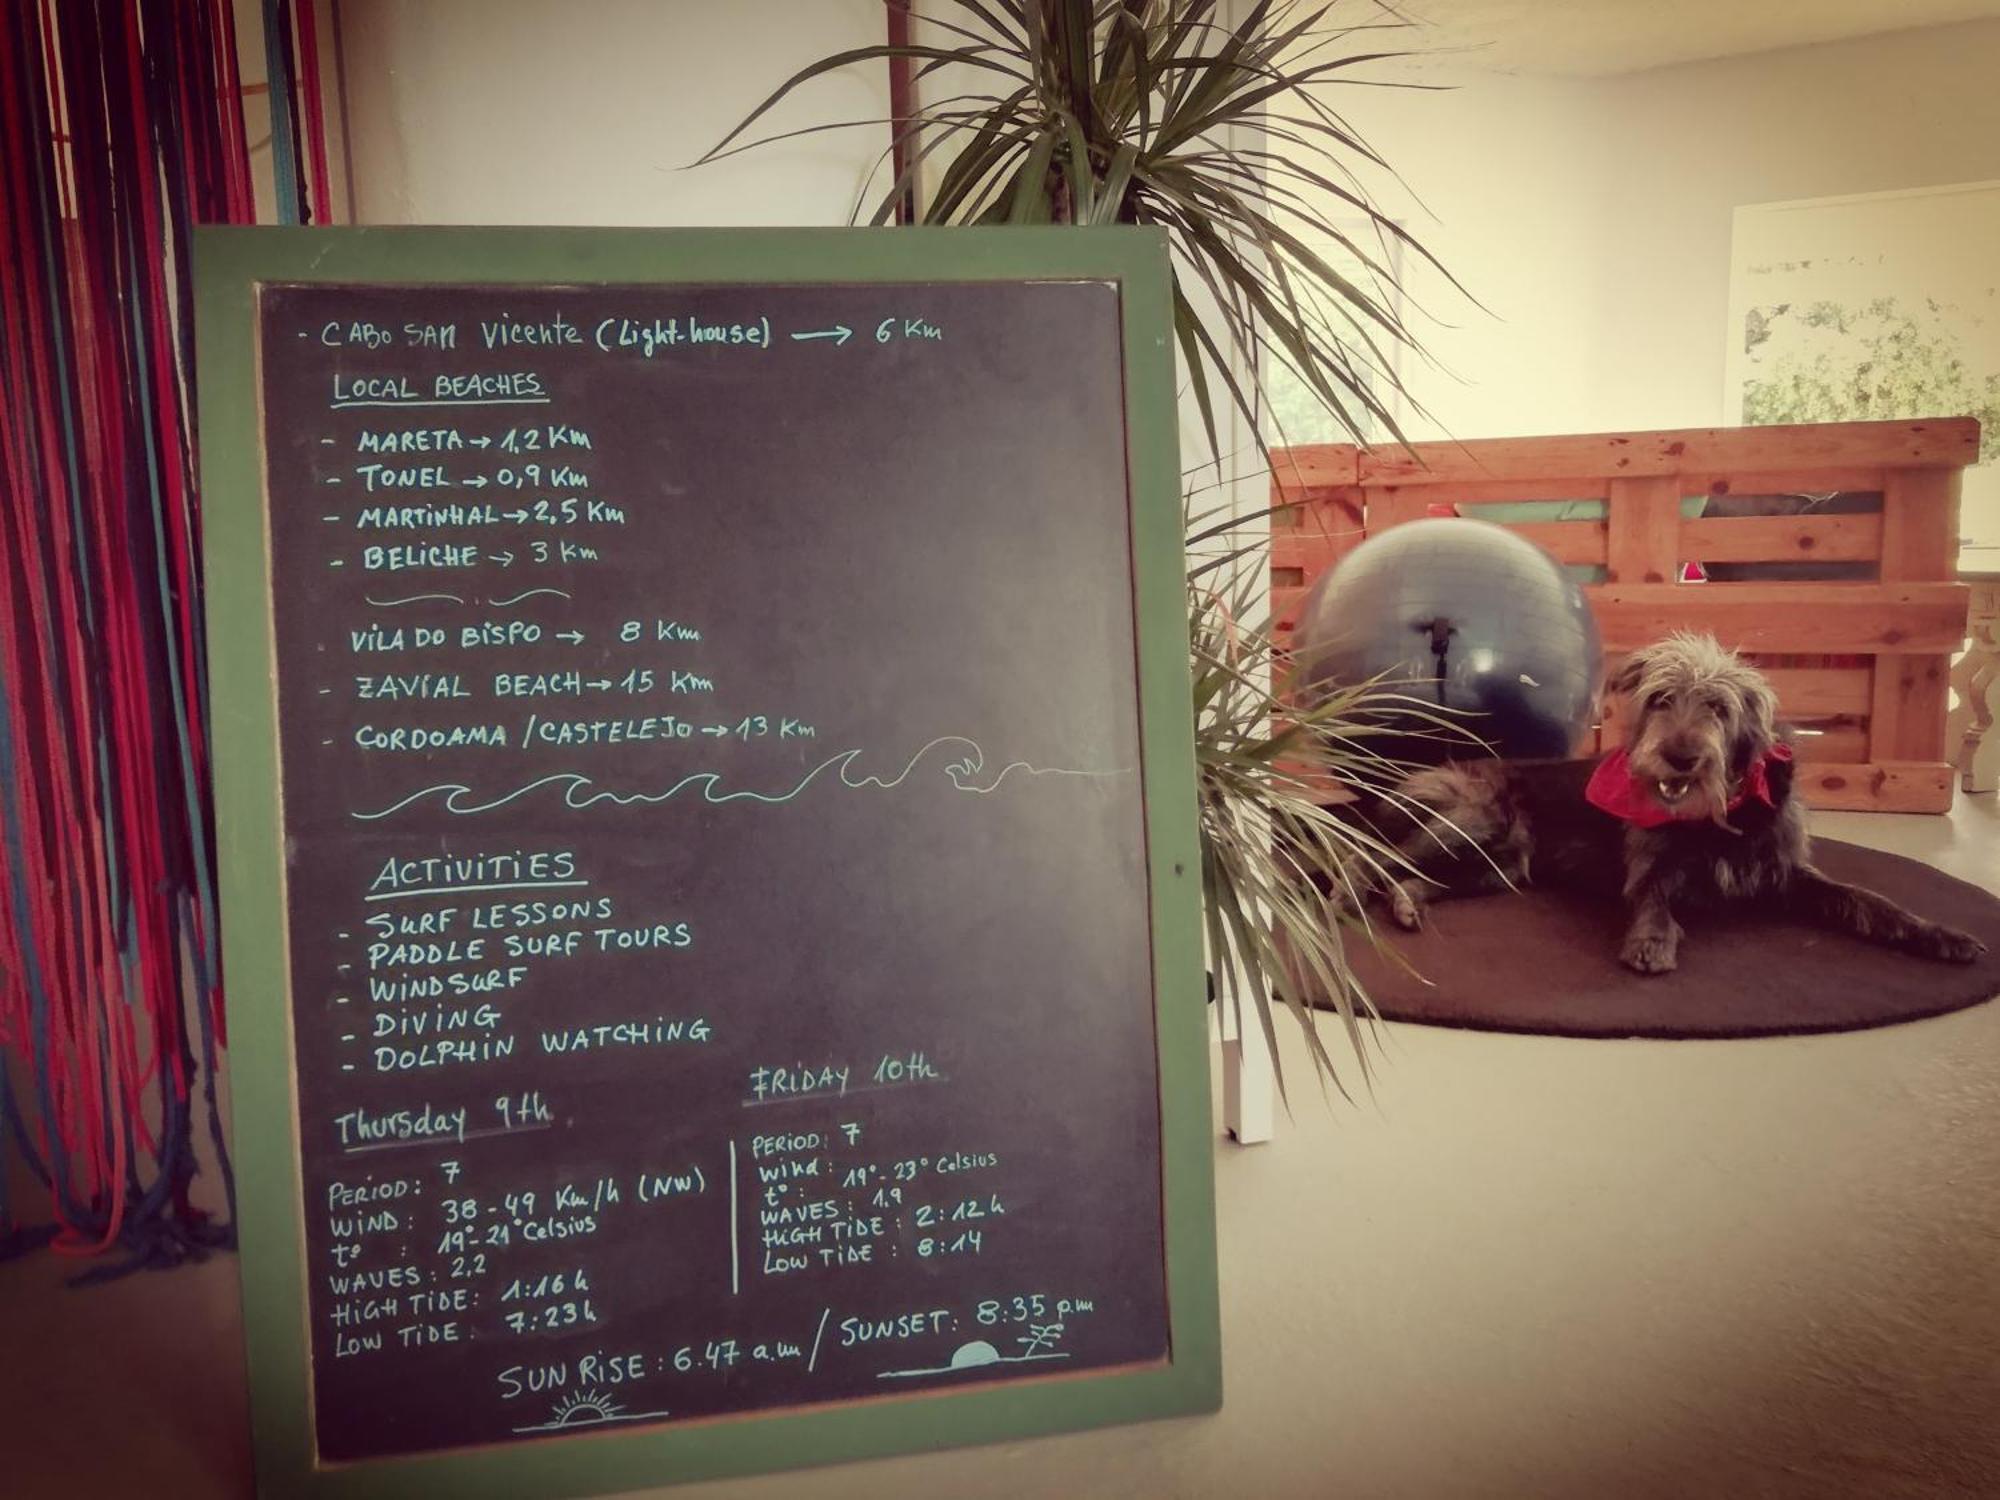 - CABO SAN Vicente (Light-house) → 6 Km
LOCAL BEACHES
- MARETA → 1,2 Km
- TONEL → 0,9 Km
- MARTINHAL → 2,5 Km
- BELICHE → 3 Km
VILA DO BISPO → 8 Km
- ZAVIAL BEACH → 15 Km
- CORDOAMA / CASTELEJO → 13 Km
ACTIVITIES
- SURF LESSONS
- PADDLE SURF TOURS
- WINDSURF
- DIVING
- DOLPHIN WATCHING
Thursday 9th
PERIOD: 7
WIND: 38-49 Km/h (NW)
tº : 19º-21º Celsius
WAVES: 2,2
HIGH TIDE: 1:16 h
LOW TIDE: 7:23 h
FRIDAY 10th
PERIOD: 7
Wind:
tº : 19º-23º Celsius
WAVES: 1,9
HIGH TIDE: 2:12 h
LOW TIDE: 8:14
SUN RISE: 6.47 a.m / SUNSET: 8:35 p.m